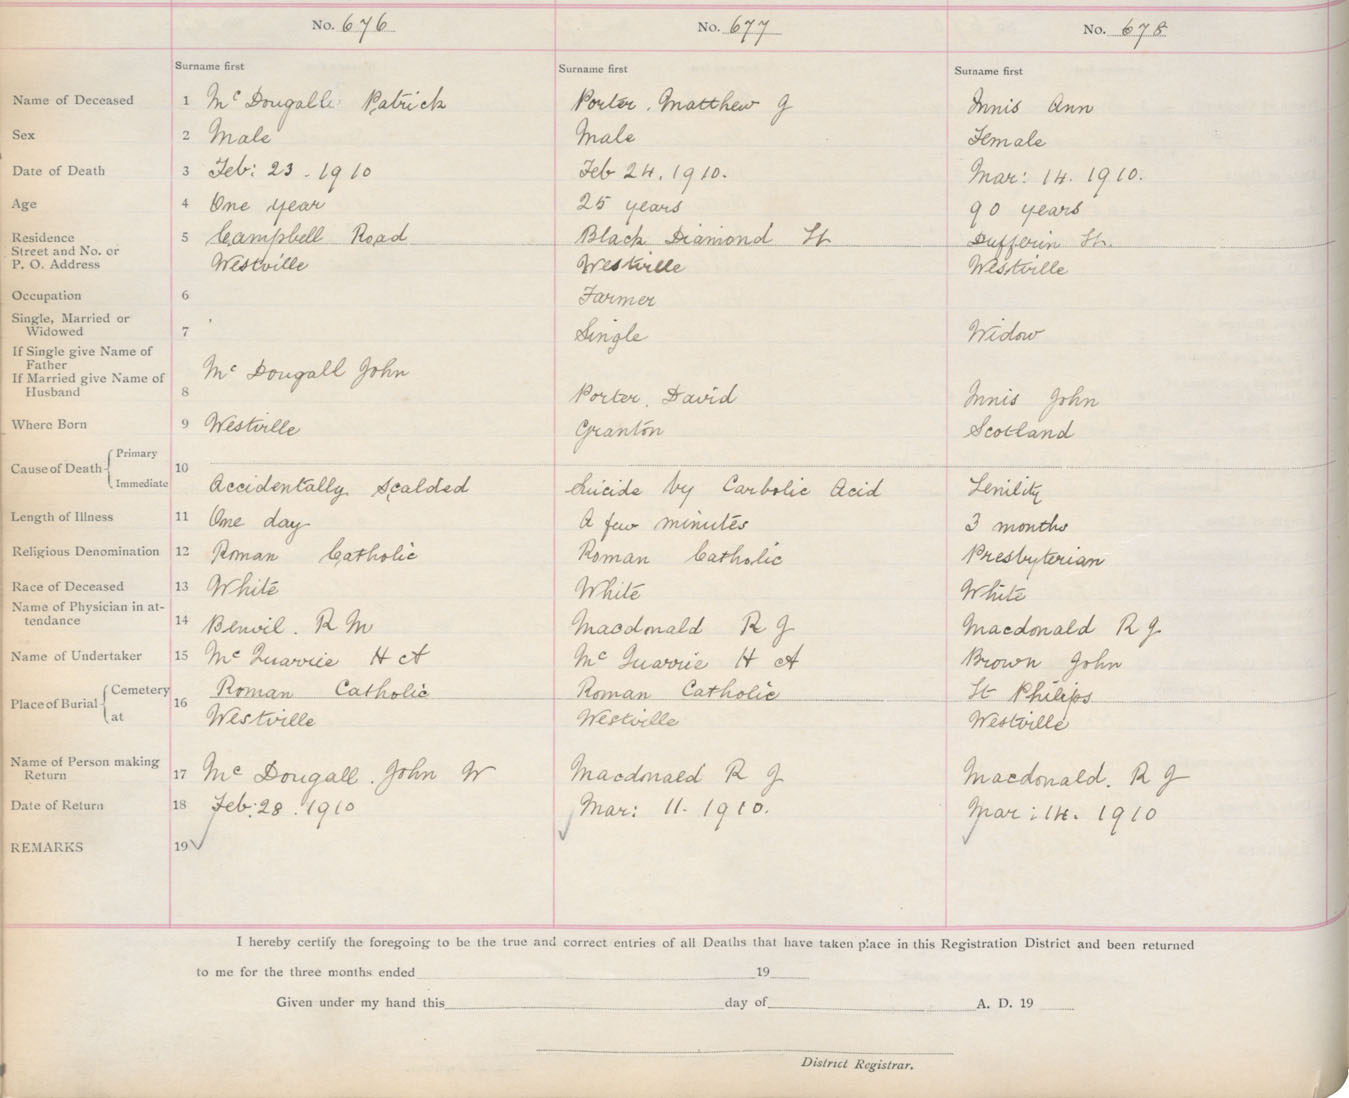 No. 676 No. 677 No. 678
Surname first Surname first Surname first
Name of Deceased 1 Mc Dougall Patrick Porter. Matthew J Innis Ann
Sex 2 Male Male Female
Date of Death 3 Feb: 23. 1910 Feb 24. 1910. Mar: 14. 1910.
Age 4 One year 25 years 90 years
Residence 5 Campbell Road Black Diamond St Dufferin St.
Street and No. or
P. O. Address Westville Westville Westville
Occupation 6 Farmer
Single, Married or
Widowed 7 Single Widow
If Single give Name of
Father Mc Dougall John
If Married give Name of
Husband 8 Porter. David Innis John
Where Born 9 Westville Granton Scotland
Primary
Cause of Death 10
Immediate Accidentally Scalded Suicide by Carbolic Acid Senility
Length of Illness 11 One day A few minutes 3 months
Religious Denomination 12 Roman Catholic Roman Catholic Presbyterian
Race of Deceased 13 White White White
Name of Physician in at-
tendance 14 R M Macdonald R J Macdonald R J
Name of Undertaker 15 Mc Quarrie H A Mc Quarrie H A Brown John
Cemetery Roman Catholic Roman Catholic St Philips
Place of Burial 16
at Westville Westville Westville
Name of Person making
Return 17 Mc Dougall. John W Macdonald R J Macdonald. R J
Date of Return 18 Feb: 28. 1910 Mar: 11. 1910. Mar: 14. 1910
REMARKS 19
I hereby certify the foregoing to be the true and correct entries of all Deaths that have taken place in this Registration District and been returned
to me for the three months ended 19
Given under my hand this day of A. D. 19
District Registrar.